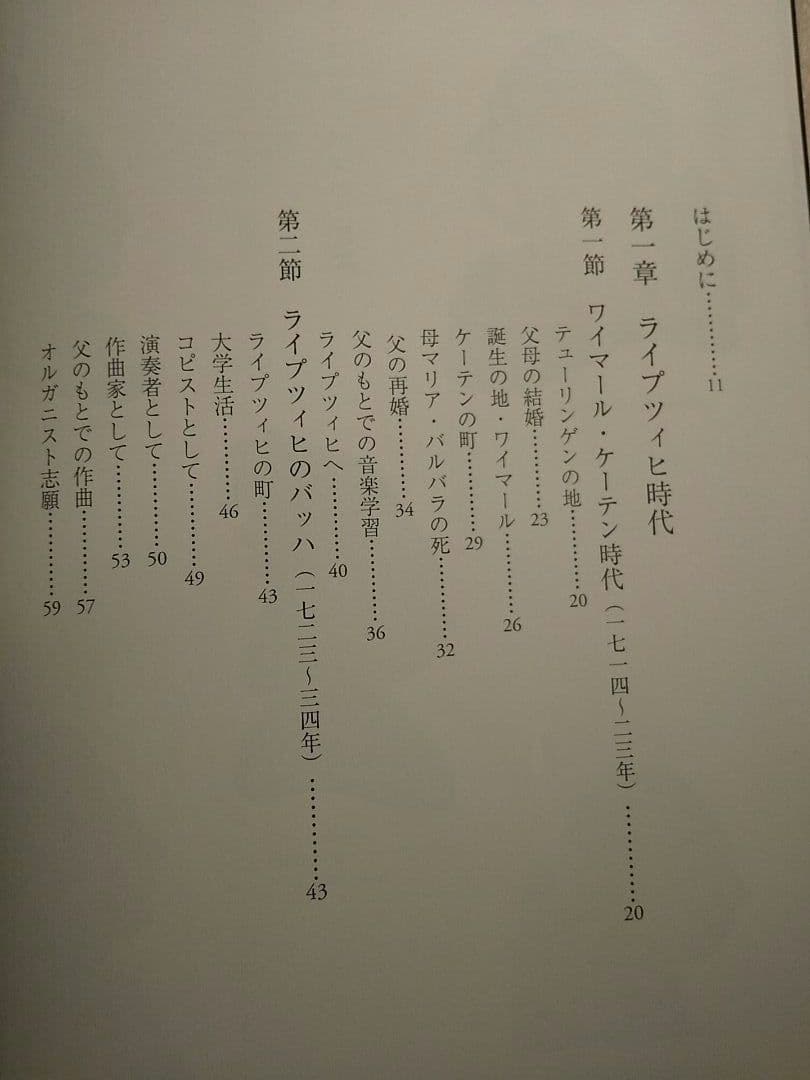 はじめに…………11
第一章 ライプツィヒ時代
第一節 ワイマール・ケーテン時代（一七一四〜二三年）…………20
テューリンゲンの地…………20
父母の結婚…………23
誕生の地・ワイマール…………26
ケーテンの町…………29
母マリア・バルバラの死…………32
父の再婚…………34
父のもとでの音楽学習…………36
ライプツィヒへ…………40
第二節 ライプツィヒのバッハ（一七二三〜三四年）…………43
ライプツィヒの町…………43
大学生活…………46
コピストとして…………49
演奏者として…………50
作曲家として…………53
父のもとでの作曲…………57
オルガニスト志願…………59